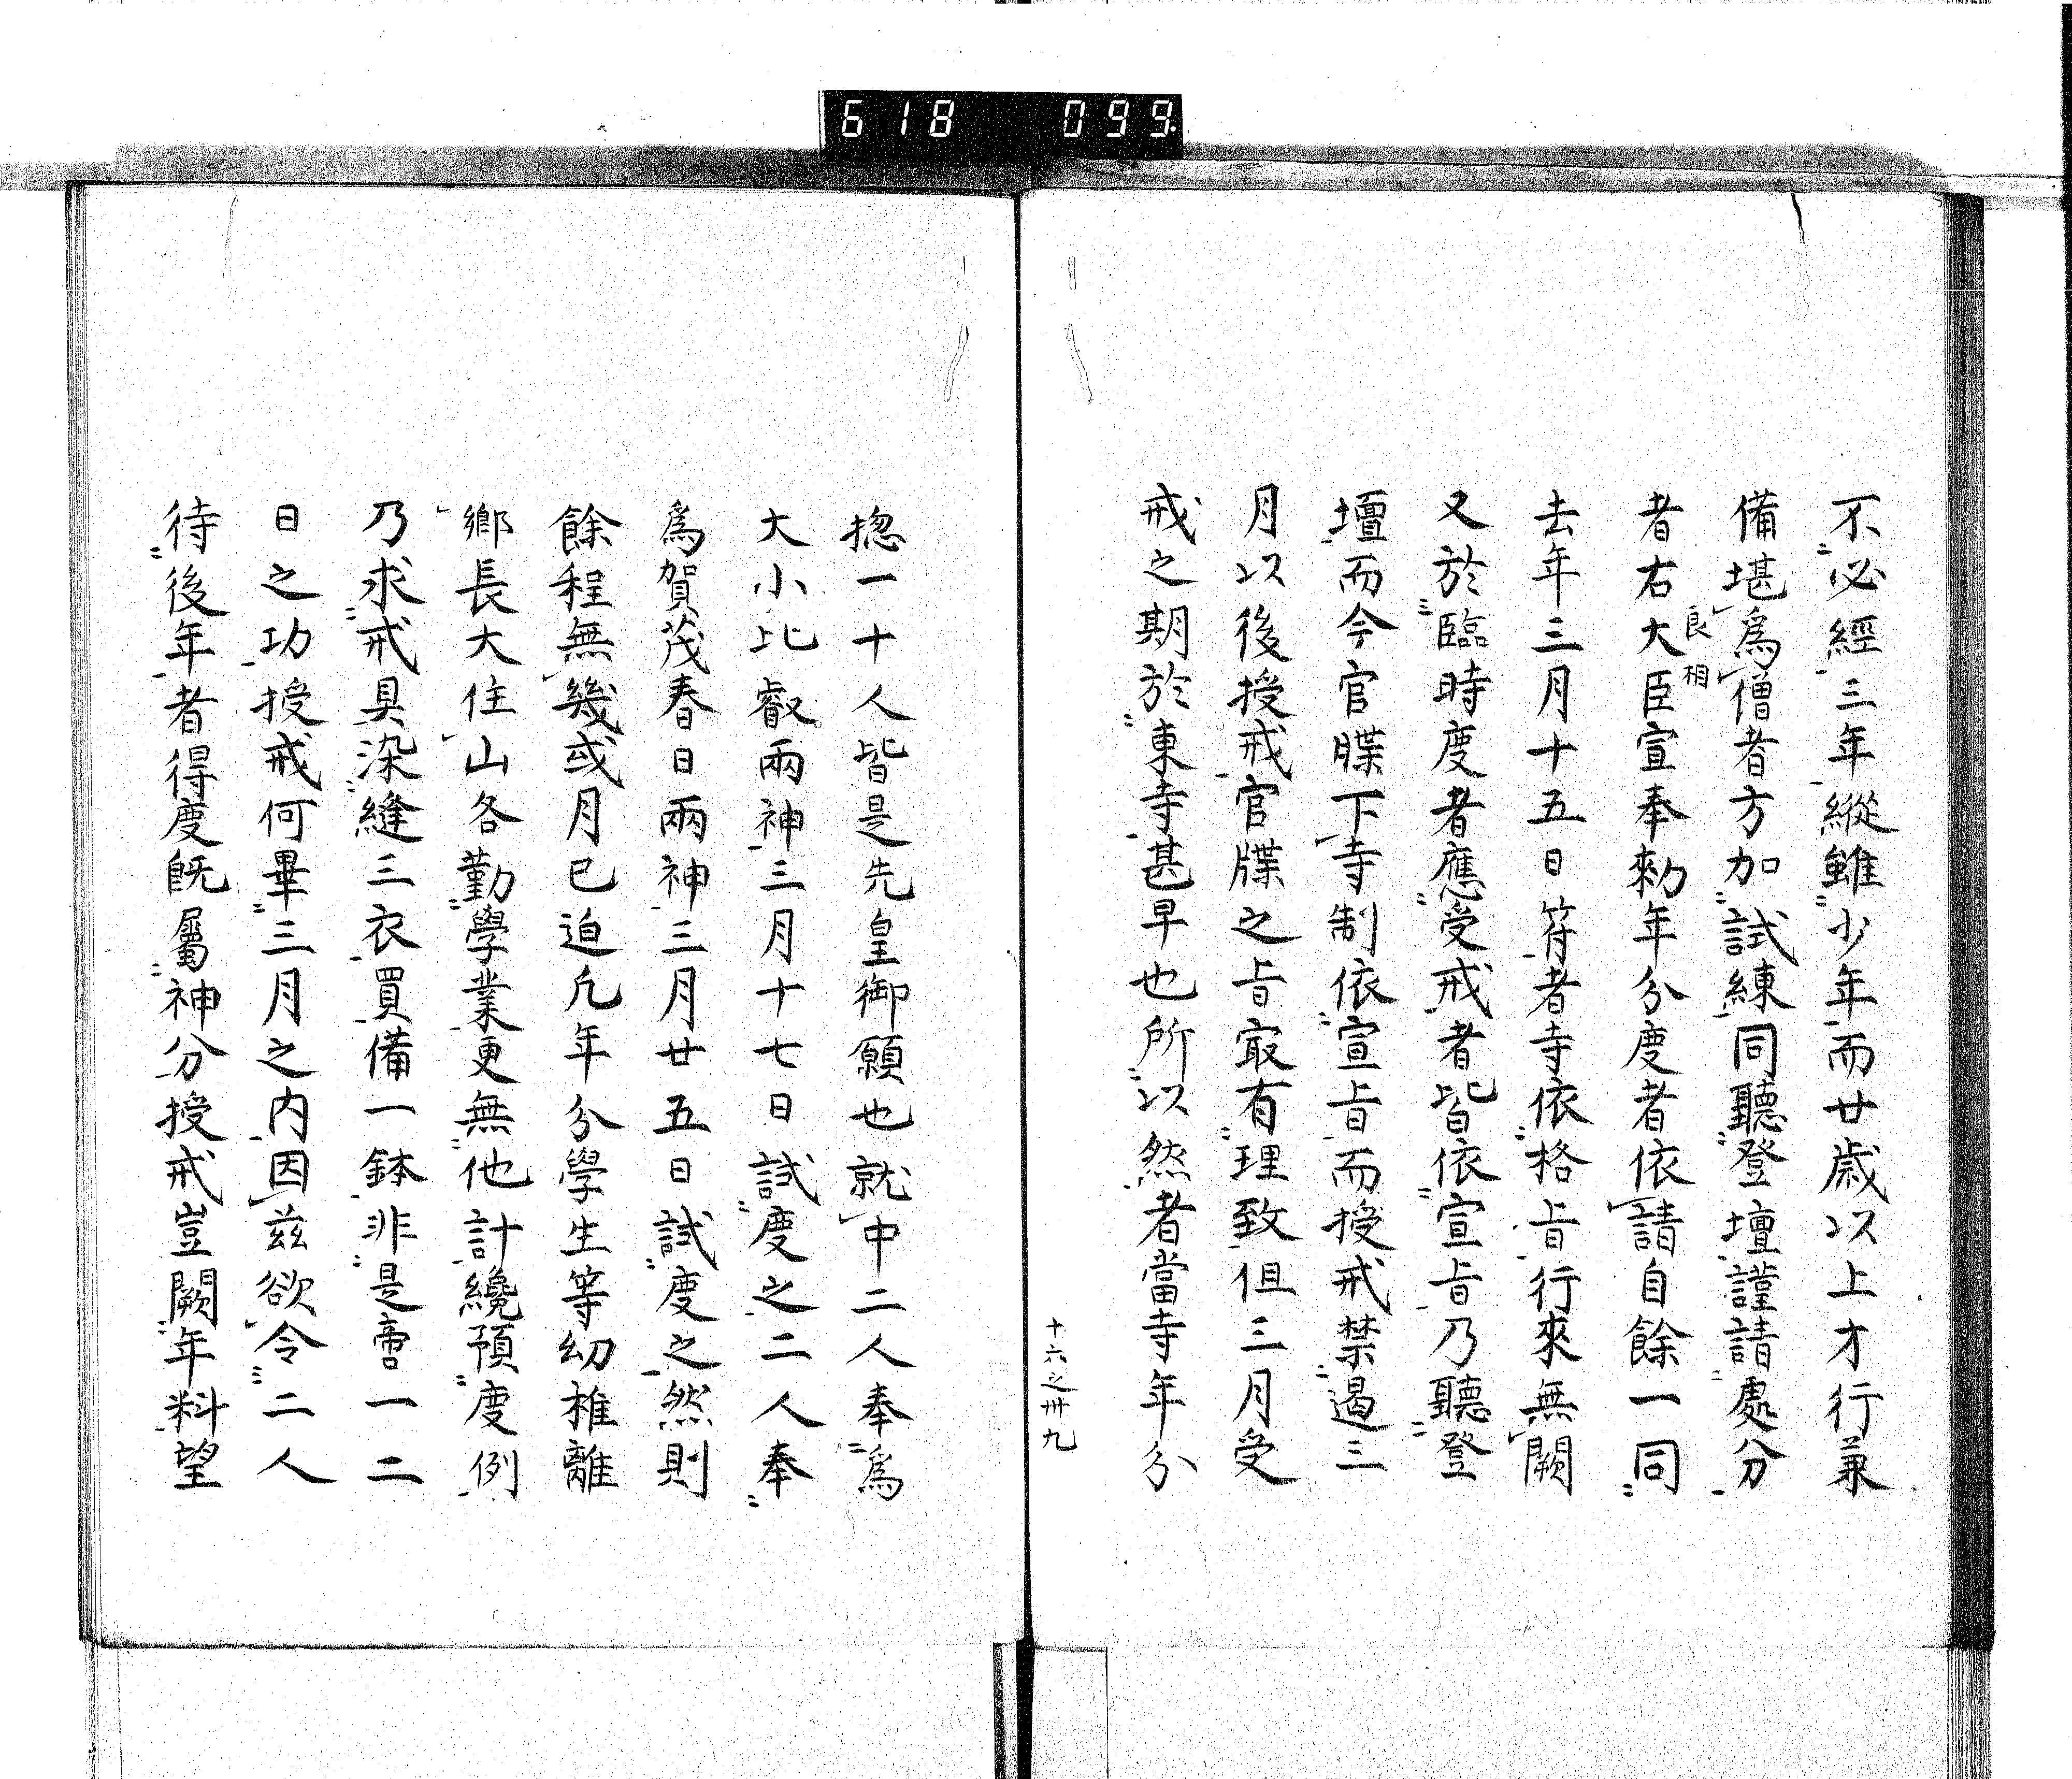 618 099.
不必經三年縱雖少年而廿歲以上才行兼
備堪爲僧者方加試練同聽登壇謹請處分
者右大臣宣奉勑年分度者依請自餘一同
良相
去年三月十五日符者寺依格旨行來無闕
又於臨時度者應受戒者皆依宣旨乃聽登
壇而今官牒下寺制依宣旨而授戒禁遏三
月以後授戒官牒之旨寂有理致但三月受
戒之期於東寺甚早也所以然者當寺年分
十六之卅九
揔一十人皆是先皇御願也就中二人奉爲
大小比叡兩神三月十七日試度之二人奉
爲賀茂春日兩神三月廿五日試度之然則
餘程無幾或月已迫凡年分學生等幼稚離
鄉長大住山各勤學業更無他計纔預度例
乃求戒具染縫三衣買備一鉢非是啻一二
日之功授戒何畢三月之內因茲欲令二人
待後年者得度旣屬神分授戒豈闕年料望